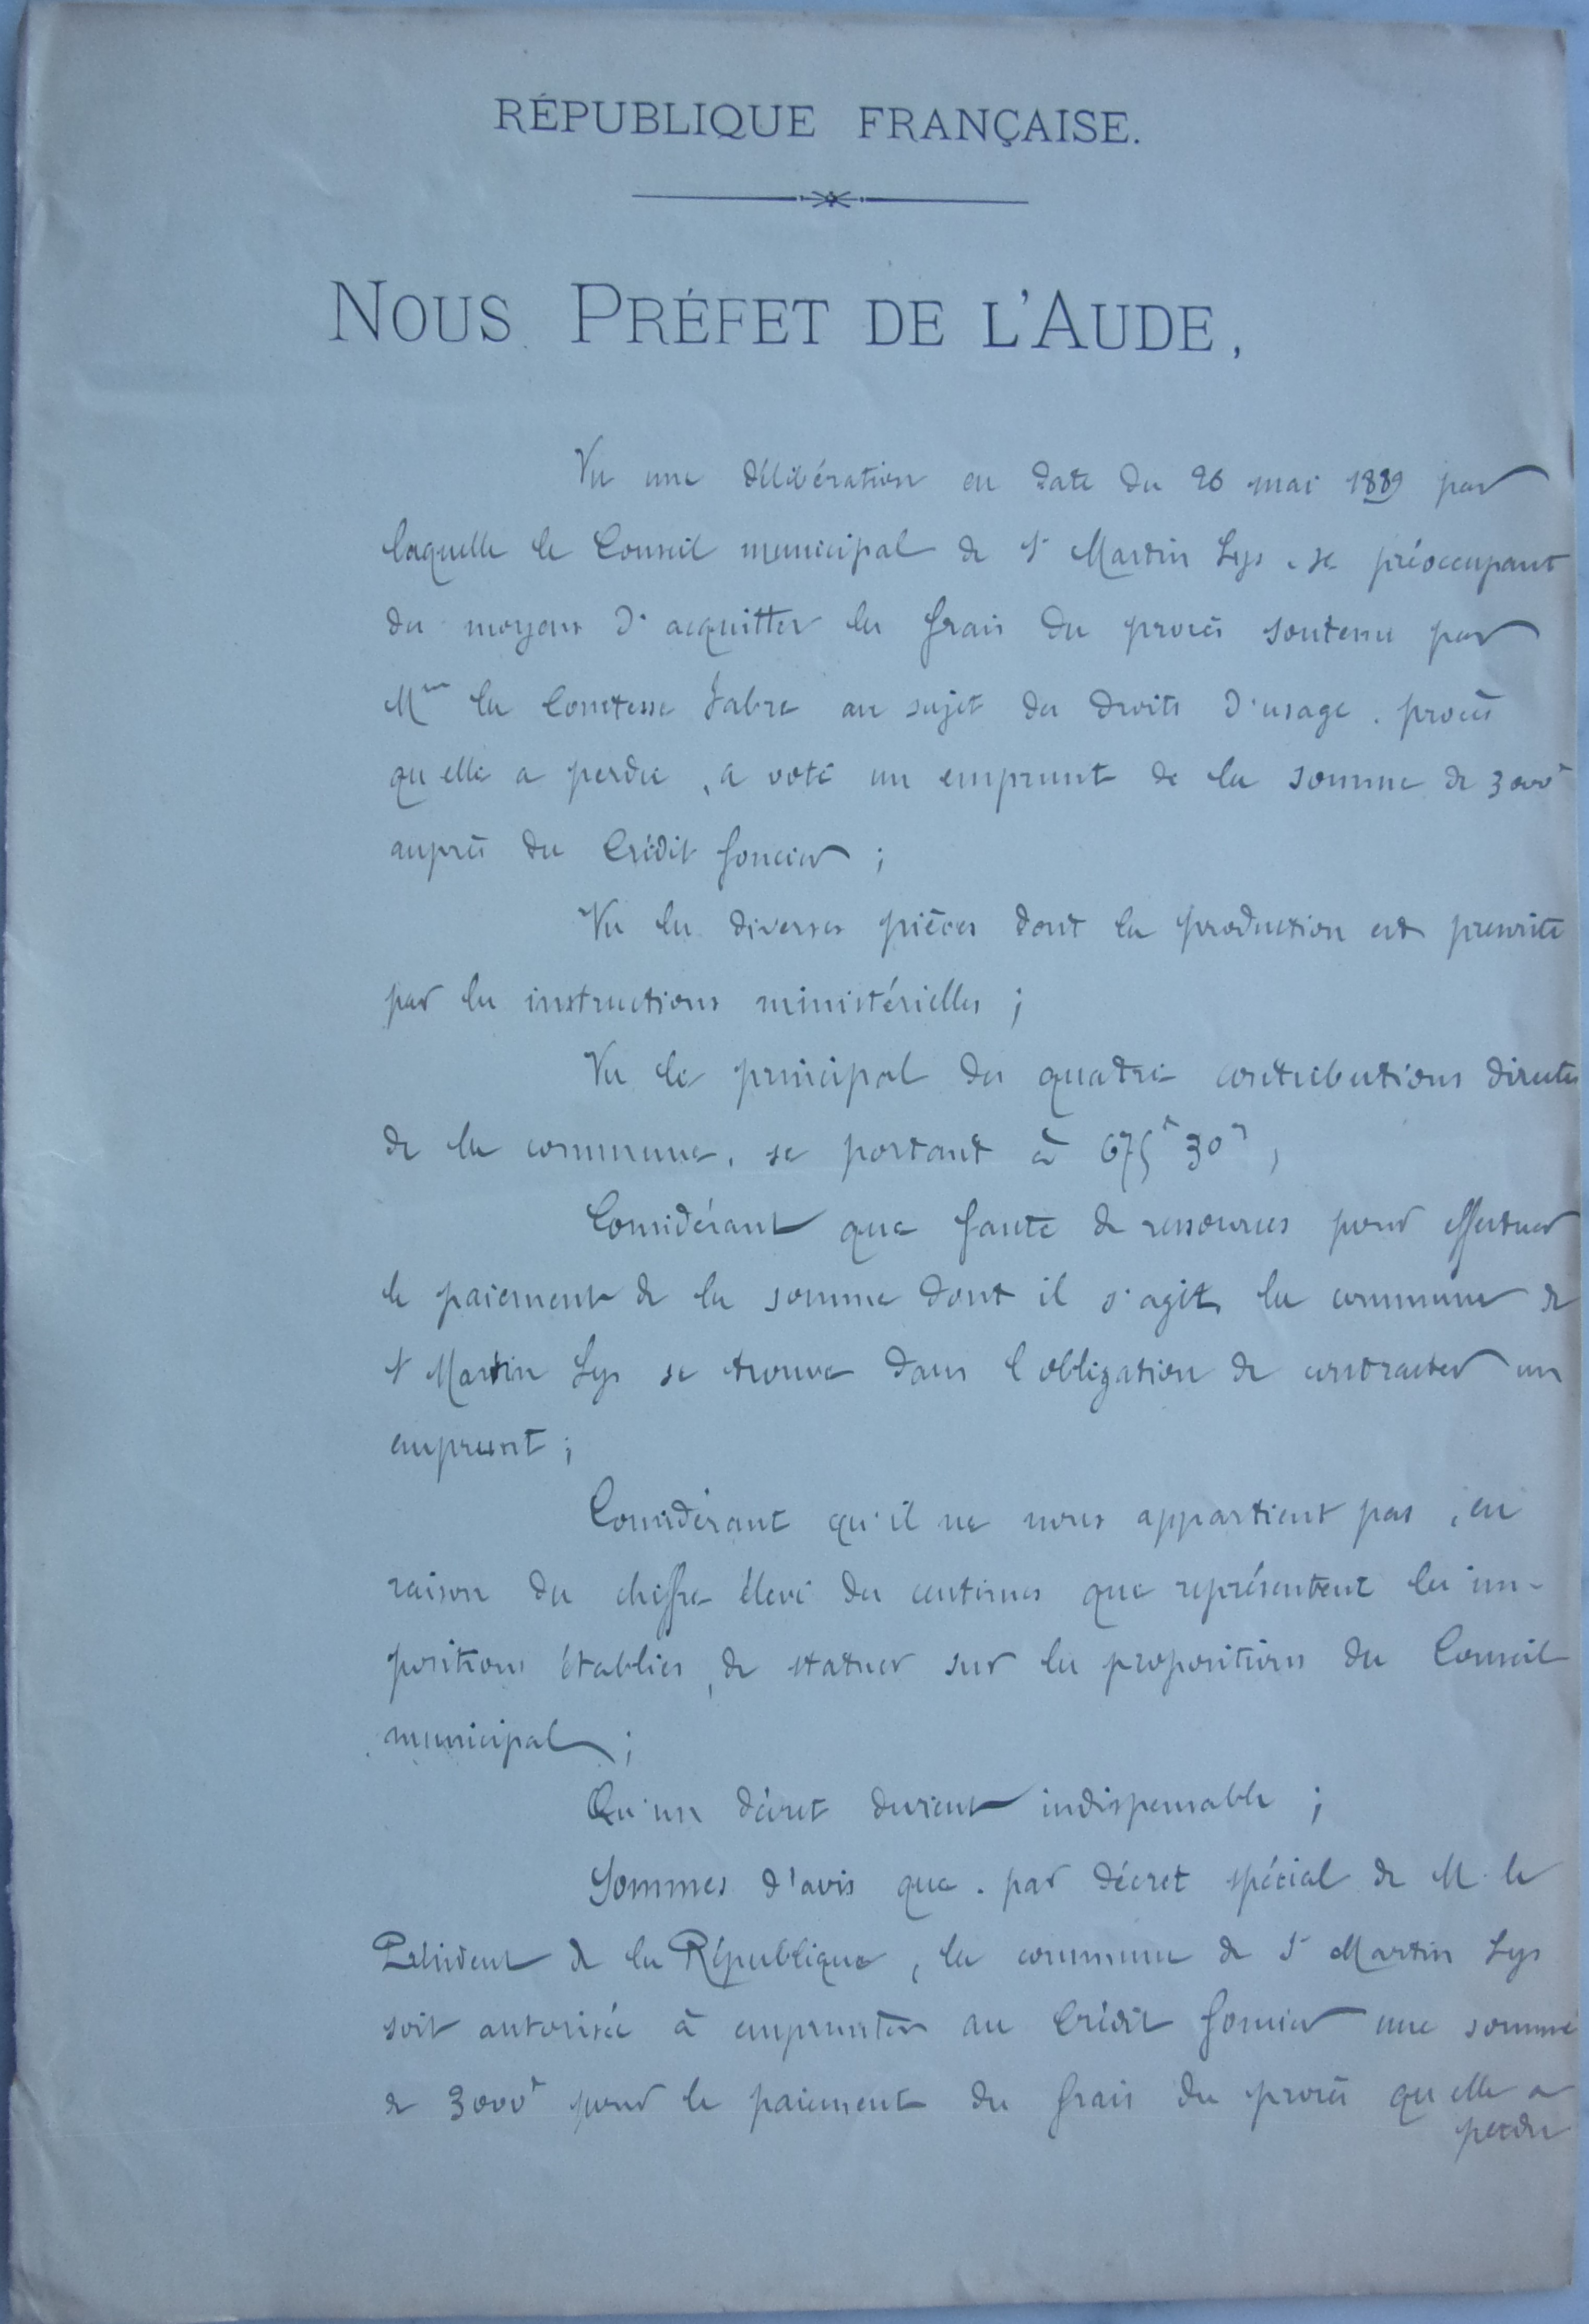 RÉPUBLIQUE FRANÇAISE.
NOUS PRÉFET DE L'AUDE,
Vu une délibération en date du 26 mai 1889 par
laquelle le Conseil municipal de St Martin Lys, se préoccupant
des moyens d'acquitter les frais du procès soutenu par
Mme la Comtesse Fabre au sujet des droits d'usage, procès
qu'elle a perdu, a voté un emprunt de la somme de 3000f
auprès du Crédit foncier ;
Vu les diverses pièces dont la production est prescrite
par les instructions ministérielles ;
Vu le principal des quatre contributions directes
de la commune, se portant à 675f 30c,
Considérant que faute de ressources pour effectuer
le paiement de la somme dont il s'agit, la commune de
St Martin Lys se trouve dans l'obligation de contracter un
emprunt ;
Considérant qu'il ne nous appartient pas, en
raison du chiffre élevé des centimes que représentent les im-
positions établies, de statuer sur les propositions du Conseil
municipal ;
Qu'un décret devient indispensable ;
Sommes d'avis que, par décret spécial de M. le
Président de la République, la commune de St Martin Lys
soit autorisée à emprunter au Crédit foncier une somme
de 3000f pour le paiement des frais du procès qu'elle a
perdu